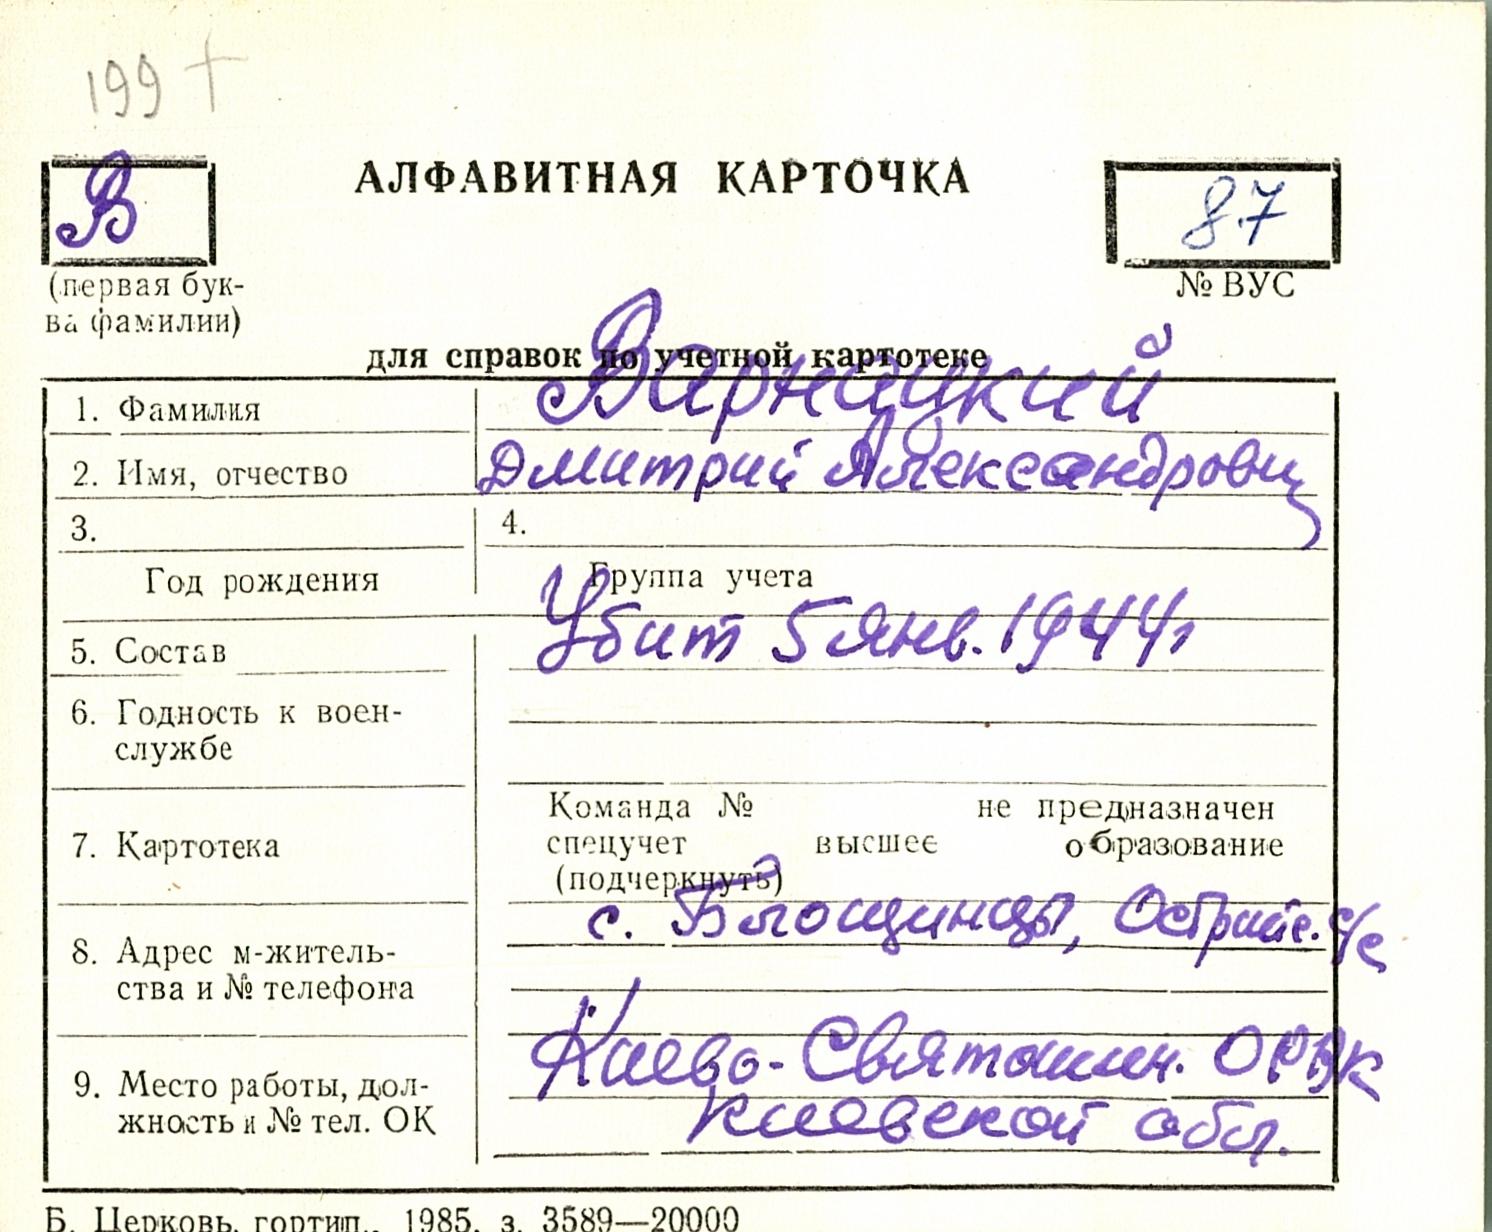 199 +
В
АЛФАВИТНАЯ КАРТОЧКА
87
(первая бук-
ва фамилии)
№ ВУС
для справок по учетной картотеке
1. Фамилия
Варницкий
2. Имя, отчество
Дмитрий Александрович
3.
4.
Год рождения
Группа учета
Убит 5 янв. 1944 г
5. Состав
6. Годность к воен-
службе
7. Картотека
Команда № не предназначен
спецучет высшее образование
(подчеркнуть)
8. Адрес м-житель-
ства и № телефона
с.
с/с
9. Место работы, дол-
жность и № тел. ОК
Киево-Святошин. ОРВК
Киевской обл.
Б. Церковь, гортип., 1985, з. 3589—20000